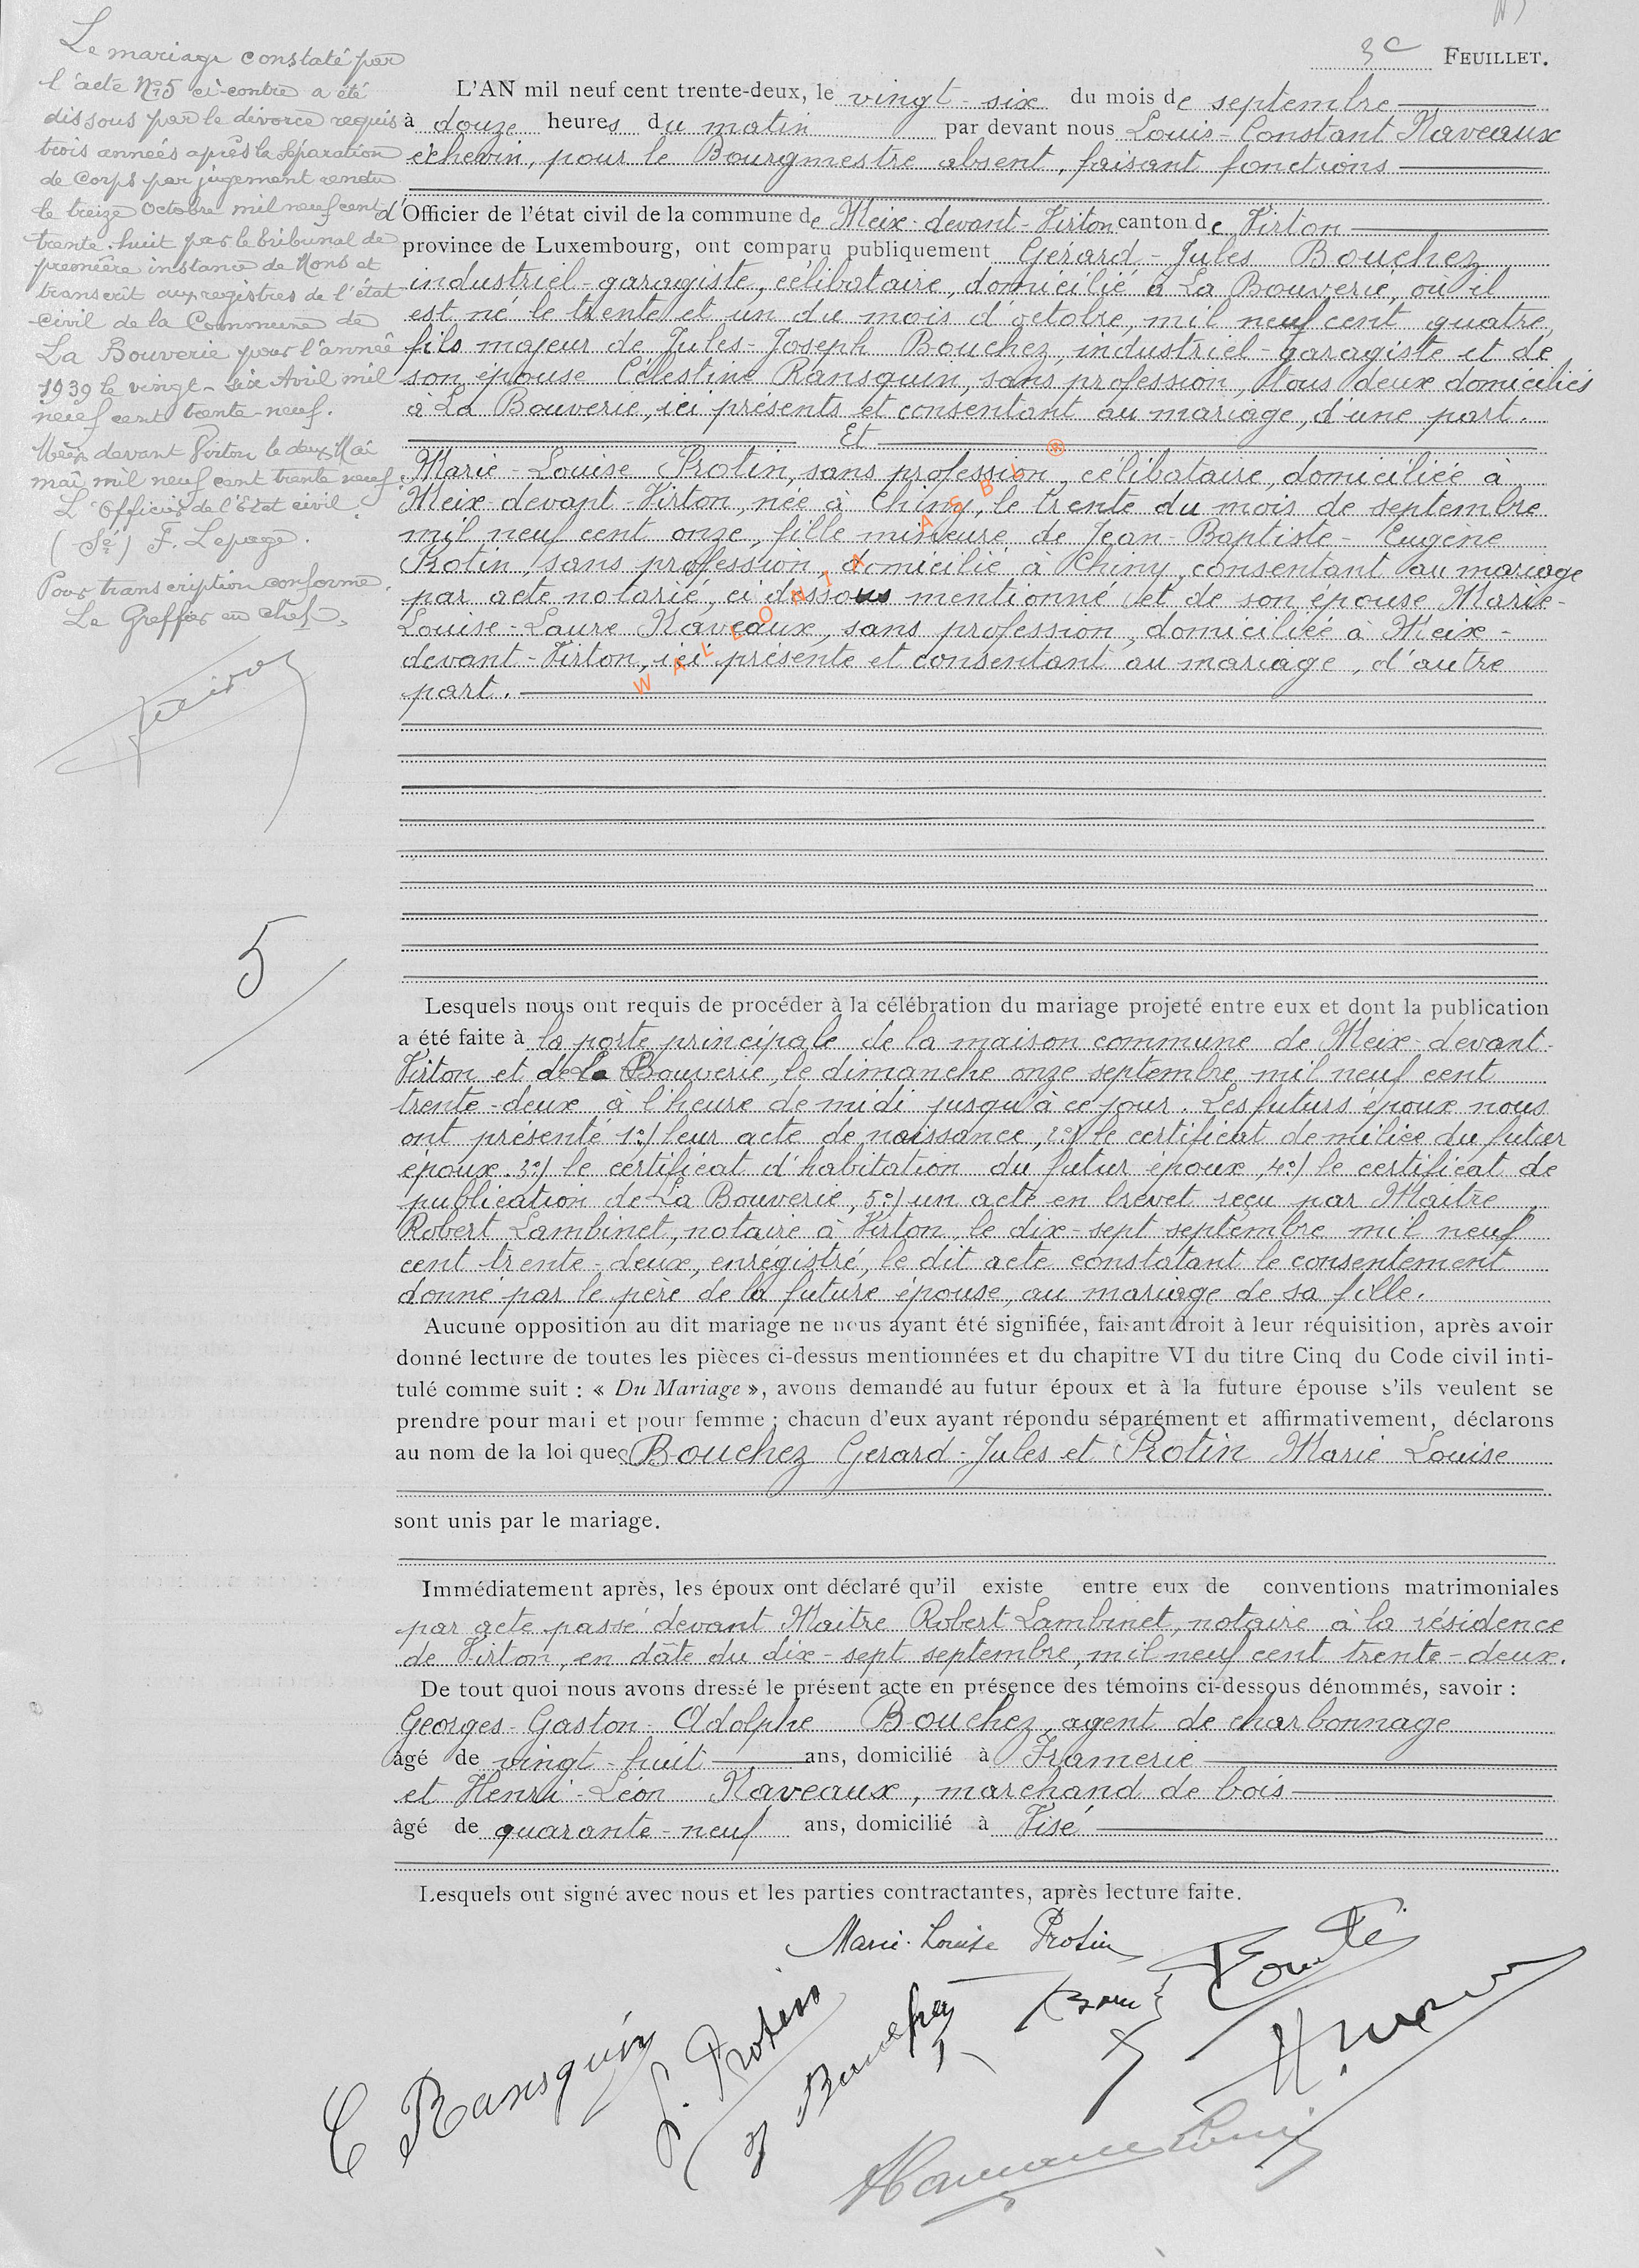 3e FEUILLET.
Le mariage constaté par
l'acte N°5 ci-contre a été
dissous par le divorce requis
trois années après la séparation
de Corps par jugement rendu
le treize Octobre mil neuf cent
trente-huit par le tribunal de
première instance de Mons et
transcrit aux registres de l'état
civil de la Commune de
La Bouverie pour l'année
1939 le vingt-six Avril mil
neuf cent trente-neuf.
Meix devant Virton le deux Mai
mai mil neuf cent trente neuf.
L'Officier de l'Etat civil.
(Sé) F. Lepage.
Pour transcription conforme.
Le Greffier en chef,
5
L'AN mil neuf cent trente-deux, le vingt-six du mois de septembre
à douze heures du matin par devant nous Louis-Constant Naveaux
échevin, pour le Bourgmestre absent, faisant fonctions
d'Officier de l'état civil de la commune de Meix-devant-Virton canton de Virton
province de Luxembourg, ont comparu publiquement Gérard-Jules Bouchez
industriel-garagiste, célibataire, domicilié à La Bouverie, où il
est né le trente et un du mois d'octobre, mil neuf cent quatre,
fils majeur de Jules-Joseph Bouchez, industriel-garagiste et de
son épouse Célestine Ransquin, sans profession, tous deux domiciliés
à La Bouverie, ici présents et consentant au mariage, d'une part.
Et
Marie-Louise Protin, sans profession, célibataire, domiciliée à
Meix-devant-Virton, née à Chiny, le trente du mois de septembre
mil neuf cent onze, fille mineure de Jean-Baptiste-Eugène
Protin, sans profession, domicilié à Chiny, consentant au mariage
par acte notarié, ci dessous mentionné et de son épouse Marie-
Louise-Laure Naveaux, sans profession, domiciliée à Meix-
devant-Virton, ici présente et consentant au mariage, d'autre
part.
WALLONIA ASBL ®
Lesquels nous ont requis de procéder à la célébration du mariage projeté entre eux et dont la publication
a été faite à la porte principale de la maison commune de Meix-devant-
Virton et de La Bouverie, le dimanche onze septembre mil neuf cent
trente-deux à l'heure de midi jusqu'à ce jour. Les futurs époux nous
ont présenté 1°/ leur acte de naissance, 2°/ le certificat de milice du futur
époux. 3°/ le certificat d'habitation du futur époux, 4°/ le certificat de
publication de La Bouverie, 5°/ un acte en brevet reçu par Maitre
Robert Lambinet, notaire à Virton, le dix-sept septembre mil neuf
cent trente-deux, enrégistré, le dit acte constatant le consentement
donné par le père de la future épouse, au mariage de sa fille.
Aucune opposition au dit mariage ne nous ayant été signifiée, faisant droit à leur réquisition, après avoir
donné lecture de toutes les pièces ci-dessus mentionnées et du chapitre VI du titre Cinq du Code civil inti-
tulé comme suit : « Du Mariage », avons demandé au futur époux et à la future épouse s'ils veulent se
prendre pour mari et pour femme ; chacun d'eux ayant répondu séparément et affirmativement, déclarons
au nom de la loi que Bouchez Gerard-Jules et Protin Marie Louise
sont unis par le mariage.
Immédiatement après, les époux ont déclaré qu'il existe entre eux de conventions matrimoniales
par acte passé devant Maitre Robert Lambinet, notaire à la résidence
de Virton, en dâte du dix-sept septembre, mil neuf cent trente-deux.
De tout quoi nous avons dressé le présent acte en présence des témoins ci-dessous dénommés, savoir :
Georges-Gaston-Adolphe Bouchez, agent de charbonnage
âgé de vingt-huit ans, domicilié à Framerie
et Henri-Léon Naveaux, marchand de bois
âgé de quarante-neuf ans, domicilié à Visé
Lesquels ont signé avec nous et les parties contractantes, après lecture faite.
Marie-Louise Protin
C Ransquin
L. Protin
J Bouchez